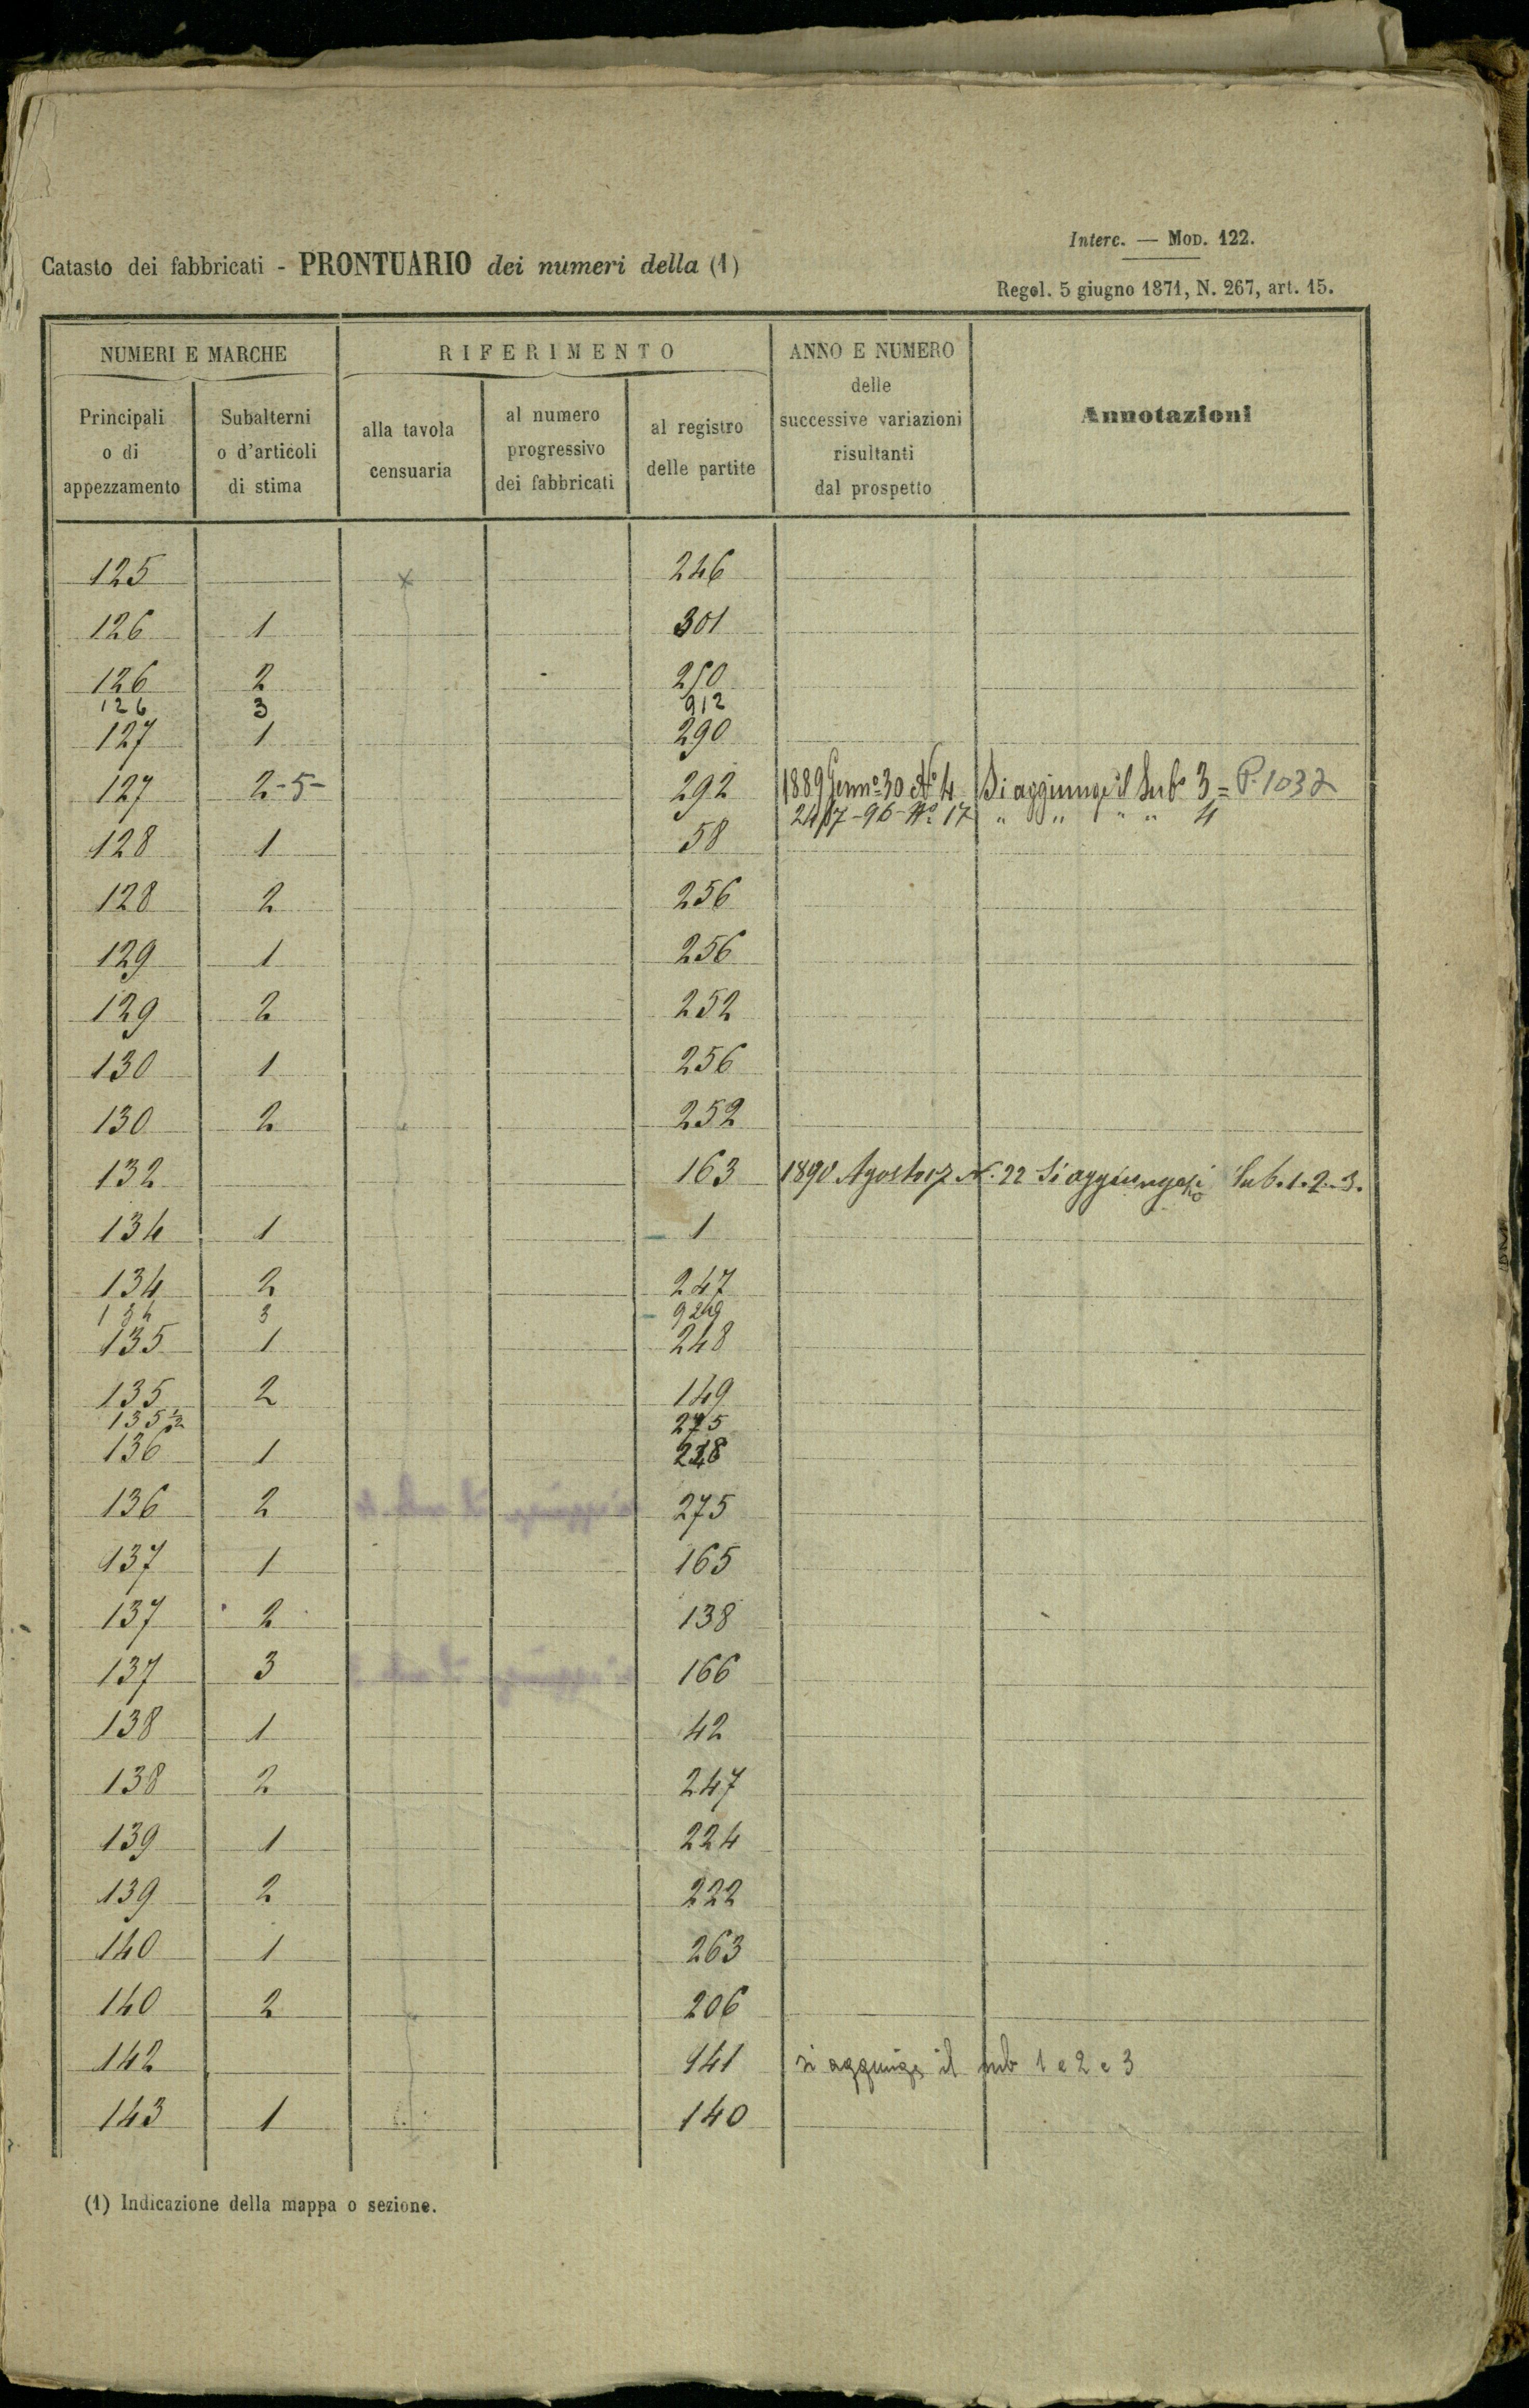 Interc. — MOD. 122.
Catasto dei fabbricati - PRONTUARIO dei numeri della (1)
Regol. 5 giugno 1871, N. 267, art. 15.
NUMERI E MARCHE
RIFERIMENTO
ANNO E NUMERO
delle
successive variazioni
risultanti
dal prospetto
Annotazioni
Principali
o di
appezzamento
Subalterni
o d'articoli
di stima
alla tavola
censuaria
al numero
progressivo
dei fabbricati
al registro
delle partite
125 246
126 1 301
126 2 250
126 3 912
127 1 290
127 2-5- 292 1889 Genn.º 30 Nº 4 Si aggiunge il Subº 3 = P. 1032
24/7-96-Nº 17 " " " " 4
128 1 58
128 2 256
129 1 256
129 2 252
130 1 256
130 2 252
132 163 1890 Agosto 17 N. 22 Si aggiungono i Sub. 1. 2. 3.
134 1 1
134 2 247
134 3
135 1 248
135 2 149
135 ½ 275
136 1
136 2 275
137 1 165
137 2 138
137 3 166
138 1 42
138 2 247
139 1 224
139 2 222
140 1 263
140 2 206
142 141 si aggiunge il sub 1 e 2 e 3
143 1 140
(1) Indicazione della mappa o sezione.